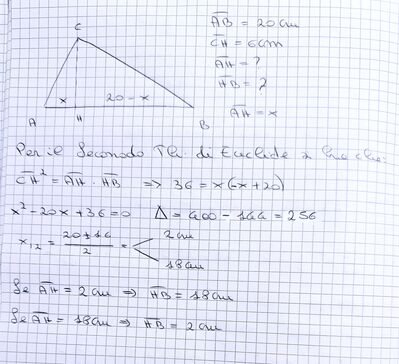 C
AB = 20 cm
CH = 6 cm
AH = ?
HB = ?
AH = x
x 20 - x
A H B
Per il Secondo Th. di Euclide si ha che:
CH² = AH · HB => 36 = x(-x+20)
x² - 20x + 36 = 0 Δ = 400 - 144 = 256
x₁,₂ = (20 ± 16)/2 = < 2 cm
18 cm
Se AH = 2 cm => HB = 18 cm
Se AH = 18 cm => HB = 2 cm